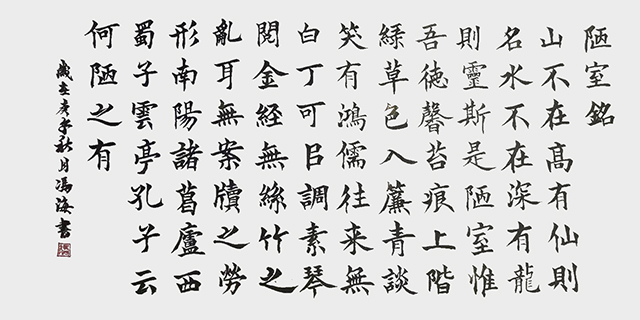 陋室銘
山不在高有仙則
名水不在深有龍
則靈斯是陋室惟
吾德馨苔痕上階
緑草色入簾青談
笑有鴻儒往来無
白丁可㠯調素琴
閱金経無絲竹之
亂耳無案牘之勞
形南陽諸葛廬西
蜀子雲亭孔子云
何陋之有
歲在庚子秋月馮海書